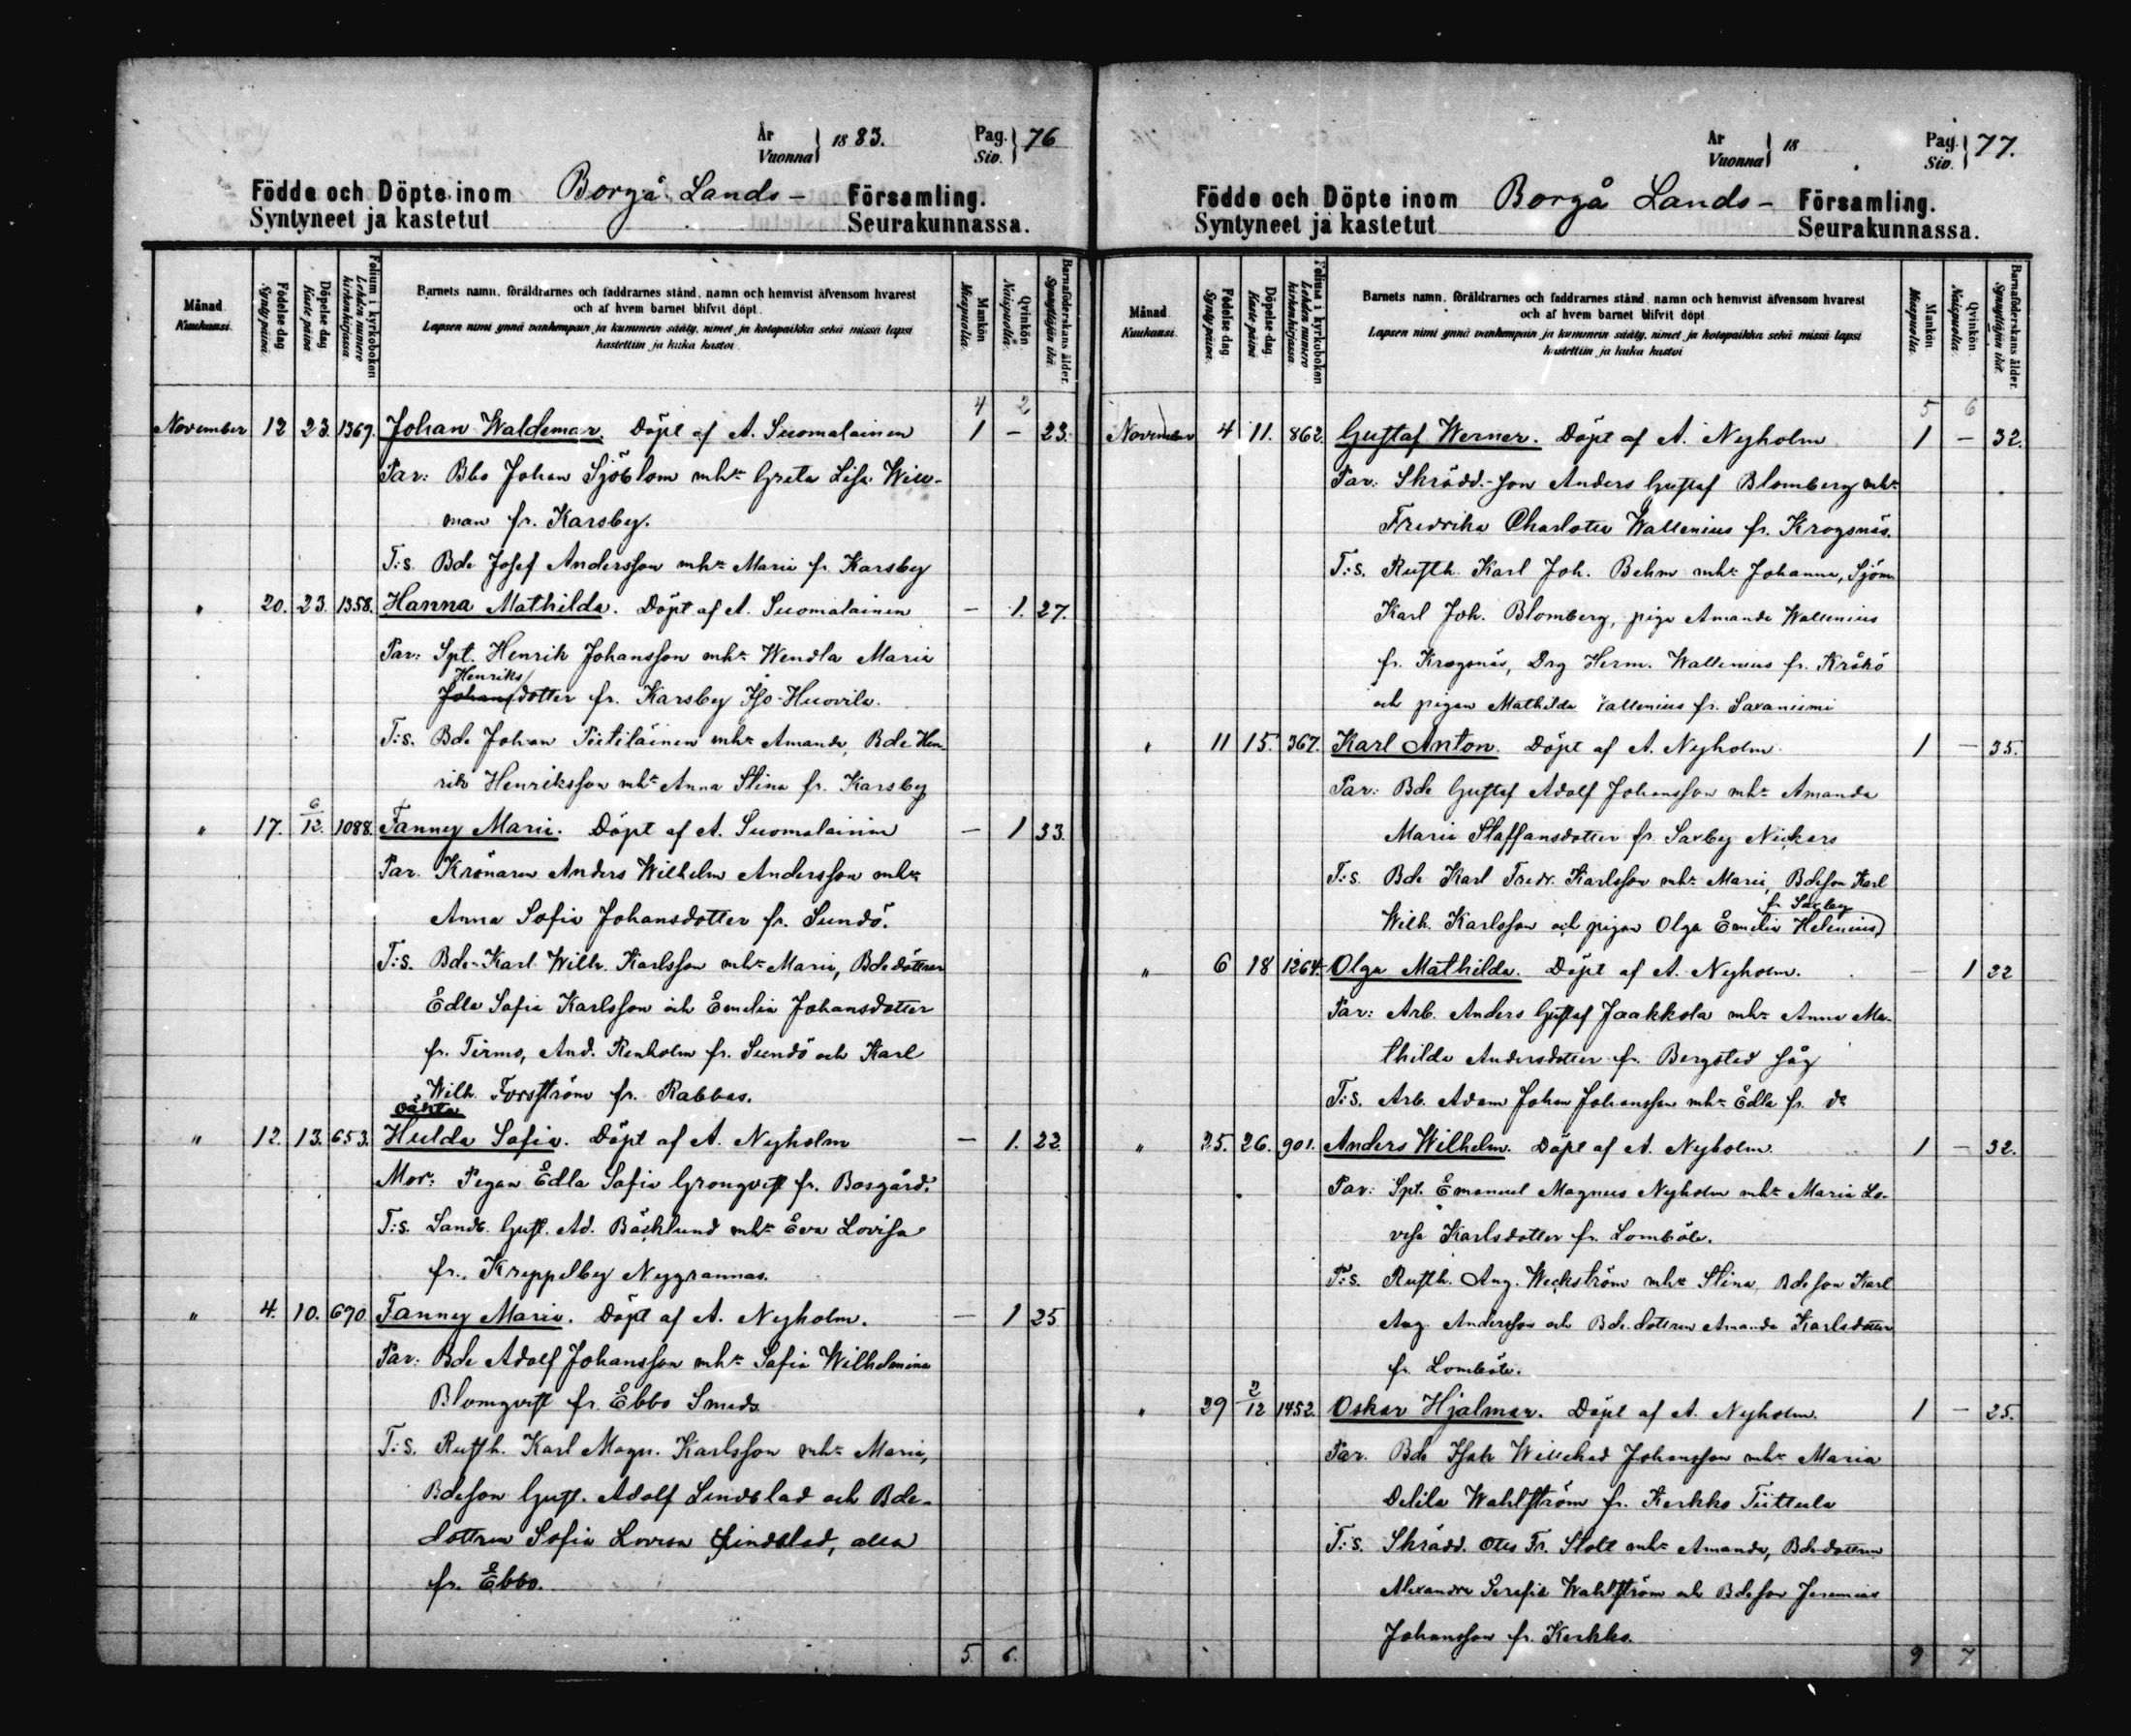 År
Vuonna } 1883. Pag.
Siv. } 76
Födde och Döpte inom Borgå Lands- Församling.
Syntyneet ja kastetut Seurakunnassa.
Månad. Kuukausi. Födelse-dag Synty päivä. Döpelse-dag Kaste päivä. Folium i kyrkoboken Lehden numero kirkonkirjassa. Barnets namn, föräldrarnes och faddrarnes stånd, namn och hemvist äfvensom hvarest Mankön. Miespuolia. Qvinkön. Naispuolia. Barnaföderskans ålder. Synnyttäjän ikä.
och af hvem barnet blifvit döpt.
Lapsen nimi ynnä vanhempain ja kummein sääty, nimet ja kotopaikka sekä missä lapsi
kastettiin ja kuka kastoi.
4 2
November 12 23. 1367. Johan Waldemar. Döpt af A. Suomalainen 1 – 23.
Par: Bbo Johan Sjöblom mhr Greta Lisa Will-
man fr. Karsby.
T:s. Bde Josef Andersson mhr Maria fr. Karsby
" 20. 23. 1358. Hanna Mathilda. Döpt af A. Suomalainen – 1. 27.
Par: Spt. Henrik Johansson mhr Wendla Maria
Henriks
Johansdotter fr. Karsby Iso-Huovila.
T:s. Bde Johan Piitiläinen mhr Amanda, Bde Hen-
rik Henriksson mhr Anna Stina fr. Karsby
" 17. 6/12. 1088. Fanny Maria. Döpt af A. Suomalainen – 1 33.
Par. Krönaren Anders Wilhelm Andersson mhr
Anna Sofia Johansdotter fr. Sundö.
T:s. Bde Karl Wilh. Karlsson mhr Maria, Bdedöttrar
Edla Sofia Karlsson och Emelia Johansdotter
fr. Tirmo, And. Renholm fr. Sundö och Karl
Wilh. Forsström fr. Rabbas.
oäkta
" 12. 13. 653. Hulda Sofia. Döpt af A. Nyholm – 1. 22
Mor: Pigan Edla Sofia Grönqvist fr. Bosgård.
T:s. Landb. Gust. Ad. Bäcklund mhr Eva Lovisa
fr. Kreppelby Nygrannas.
" 4. 10. 690 Fanny Maria. Döpt af A. Nyholm. – 1 25
Par: Bde Adolf Johansson mhr Sofia Wilhelmina
Blomqvist fr. Ebbo Smeds
T:s. Rusth. Karl Magn. Karlsson mhr Maria,
Bdeson Gust. Adolf Lindblad och Bde-
dottren Sofia Lovisa Lindblad, alla
fr. Ebbo.
5. 6.
År
Vuonna } 18 Pag.
Siv. } 77.
Födde och Döpte inom Borgå Lands- Församling.
Syntyneet ja kastetut Seurakunnassa.
Månad. Kuukausi. Födelse dag Synty päivä. Döpelse dag Kaste päivä. Folium i kyrkoboken Lehden numero kirkonkirjassa. Barnets namn, föräldrarnes och faddrarnes stånd, namn och hemvist äfvensom hvarest Mankön. Miespuolia. Qvinkön. Naispuolia. Barnaföderskans ålder. Synnyttäjän ikä.
och af hvem barnet blifvit döpt
Lapsen nimi ynnä vanhempain ja kummein sääty, nimet ja kotopaikka sekä missä lapsi
kastettiin ja kuka kastoi
5 6
November 4 11. 862. Gustaf Werner. Döpt af A. Nyholm 1 – 32.
Par: Skrädd.-son Anders Gustaf Blomberg mhr
Fredrika Charlotta Wallenius fr. Krogsnäs.
T:s. Rusth. Karl Joh. Behm mhr Johanna, Sjöm.
Karl Joh. Blomberg, piga Amanda Wallenius
fr. Krogsnäs, Drg Herm. Wallenius fr. Kråkö
och pigan Mathilda Wallenius fr. Saxaniemi
" 11 15. 367. Karl Anton. Döpt af A. Nyholm 1 – 35.
Par: Bde Gustaf Adolf Johansson mhr Amanda
Maria Staffansdotter fr. Saxby Nickars
T:s. Bde Karl Fredr. Karlsson mhr Maria, Bdeson Karl
fr. Saxby
Wilh. Karlsson och pigan Olga Emelia Helenius
" 6 18 1264. Olga Mathilda. Döpt af A. Nyholm. – 1 22
Par: Arb. Anders Gustaf Jaakkola mhr Anna Ma-
thilda Andersdotter fr. Bergsted såg
T:s. Arb. Adam Johan Johansson mhr Edla fr. do
" 25. 26. 901. Anders Wilhelm. Döpt af A. Nyholm. 1 – 32.
Par: Spt. Emanuel Magnus Nyholm mhr Maria Lo-
visa Karlsdotter fr. Lomböle.
T:s. Rusth. Aug. Weckström mhr Stina, Bdeson Karl
Aug. Andersson och Bde.dottren Amanda Karlsdotter
fr. Lomböle.
" 29 2/12 1452. Oskar Hjalmar. Döpt af A. Nyholm. 1 – 25.
Par. Bde Isak Willehad Johansson mhr Maria
Delila Wahlström fr. Kerkko Tiittula
T:s. Skrädd. Otto Fr. Stolt mhr Amanda, Bde-dottren
Alexandra Serafia Wahlström och Bdeson Jeremias
Johansson fr. Kerkko.
9 7